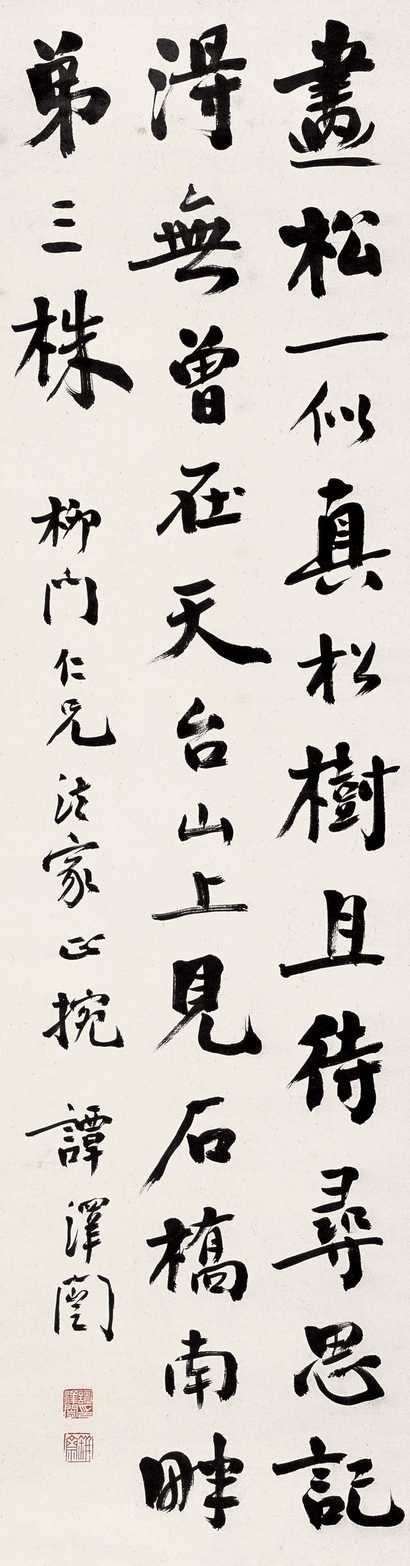 畫松一似真松樹且待尋思記
淂無曾在天台山上見石橋南畔
弟三株
柳門仁兄法家正捥
譚澤闓